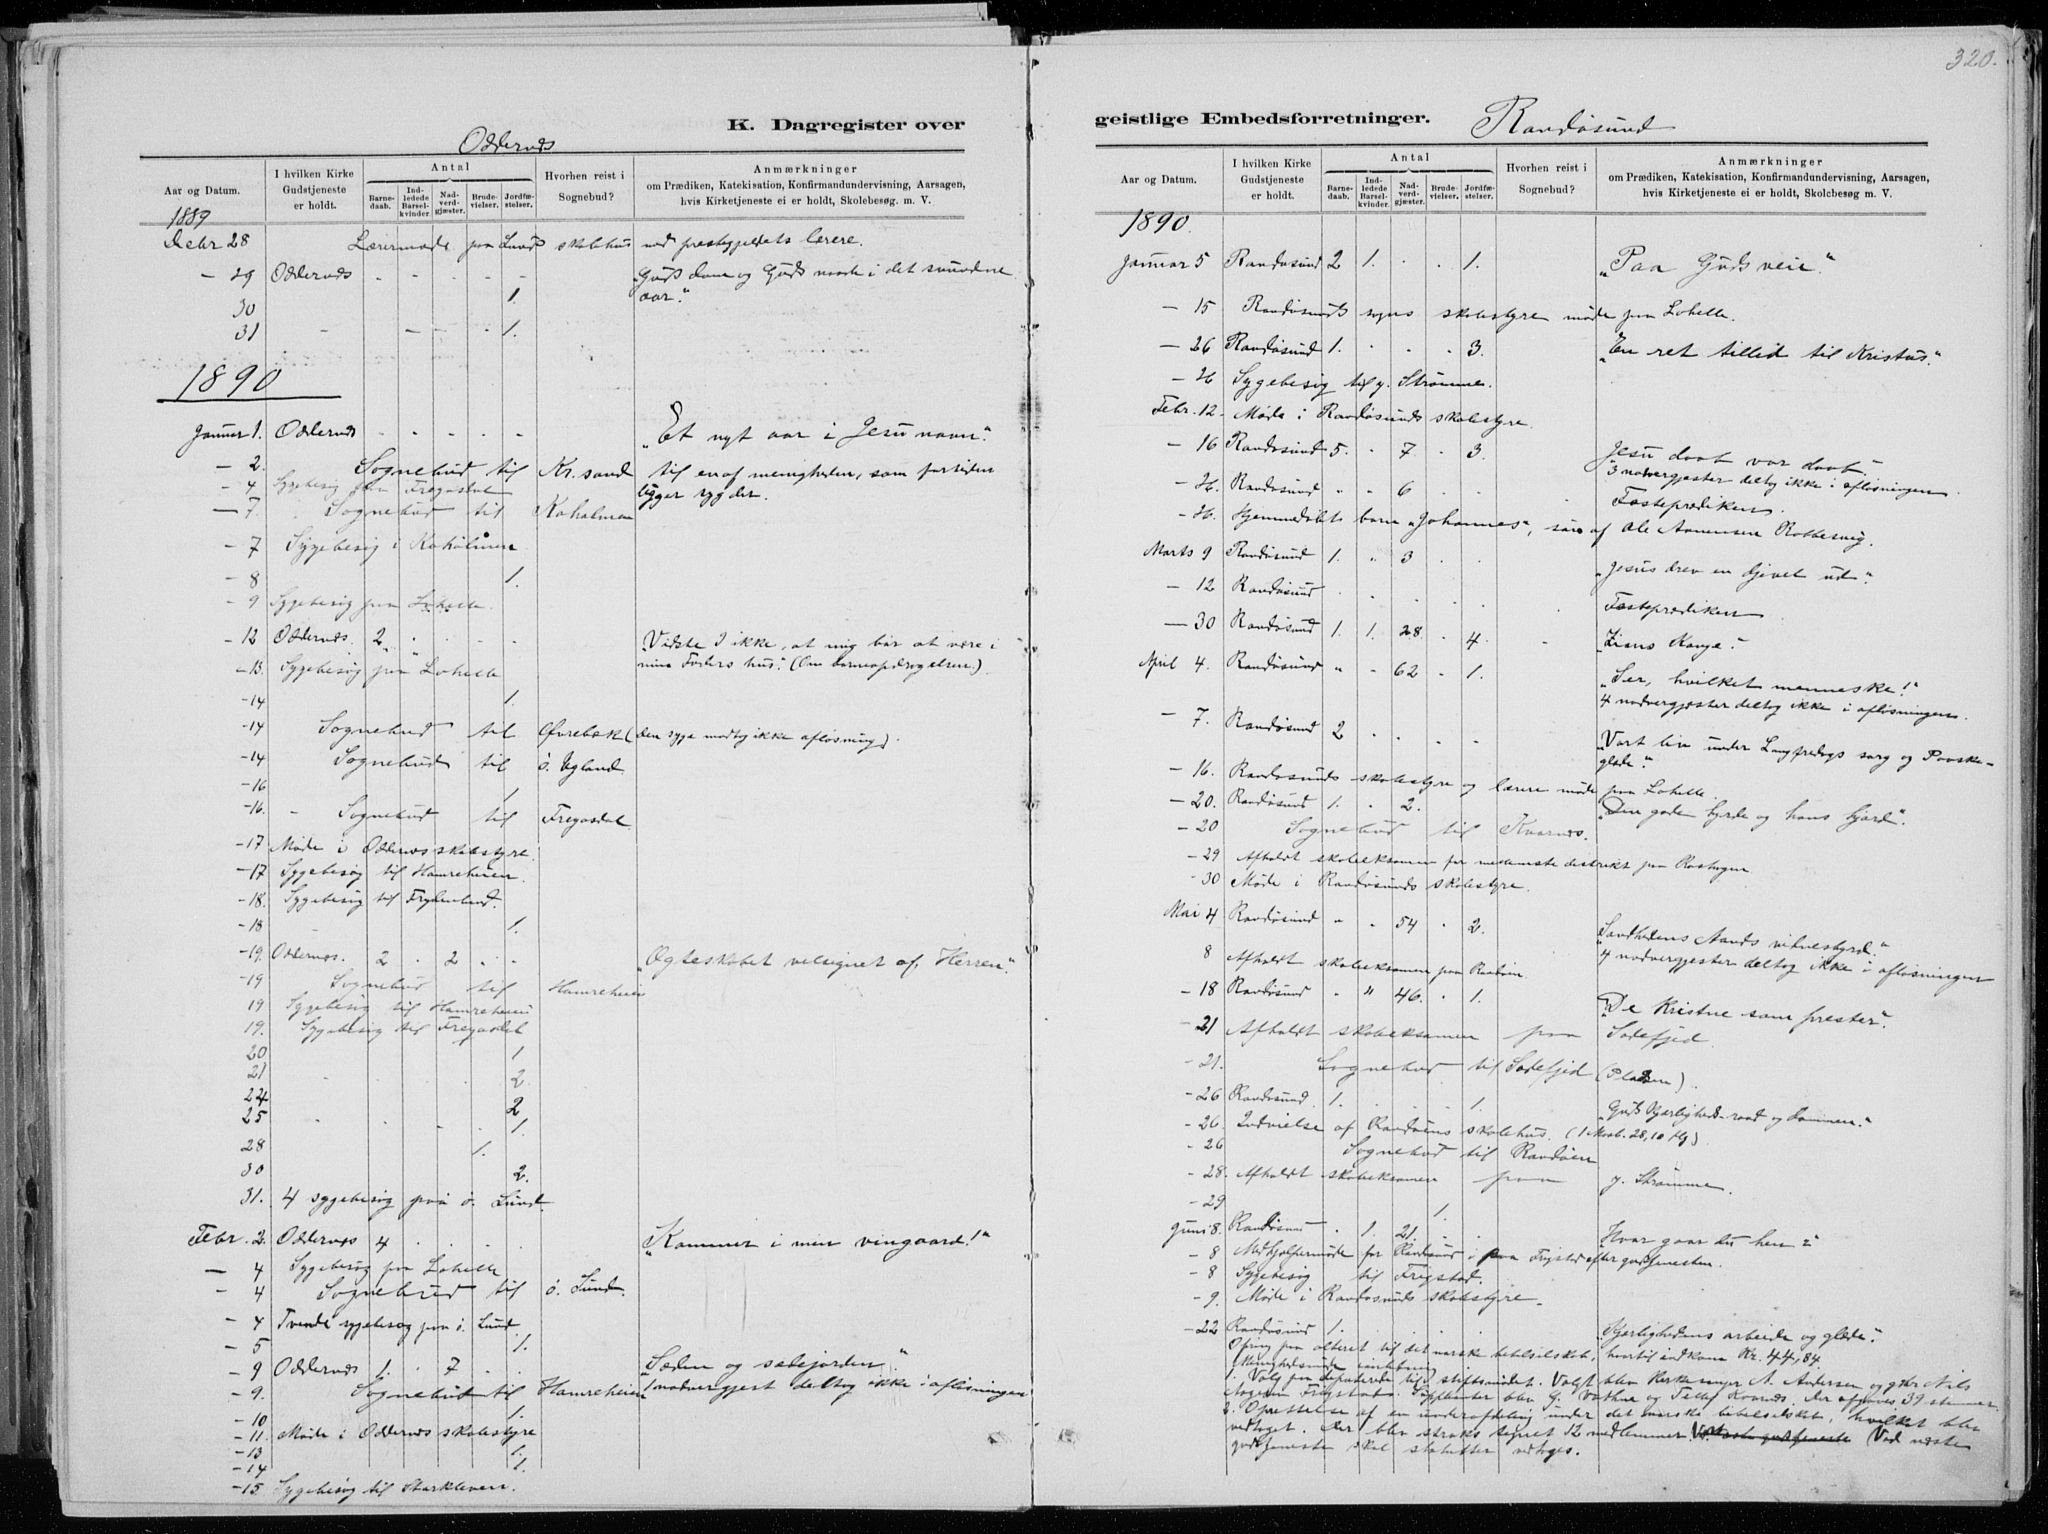 320.
K. Dagregister over
Oddernes
Aar og Datum.
I hvilken Kirke Gudstjeneste er holdt.
Antal
Barnedaab.
Indledede Barselkvinder.
Nadverdgjæster.
Brudevielser.
Jordfæstelser.
Hvorhen reist i Sognebud?
Anmærkninger
om Prædiken, Katekisation, Konfirmandundervisning, Aarsagen,
hvis Kirketjeneste ei er holdt, Skolebesøg. m. V.
1889
Debr 28 Lærermøde paa Lunds skolehus med prestegjeldets lærere.
- 29 Oddernes - - - - - „Guds dom og Guds naade i det svundne
aar.“
30 1.
31 - - - 1.
1890
Januar 1. Oddernes - - - - - „Et nyt aar i Jesu navn“.
- 2. Sognebud til Kr.sand til en af menigheden, som for tiden
- 4 Sygebesøg paa Fregasdal ligger syg der.
- 7. Sognebud til Koholmen
- 7 Sygebesøg i Koholmen
- 8 1.
- 9 Sygebesøg paa Lohelle.
- 12 Oddernes. 2 - - - - „Vidste I ikke, at mig bør at være i
- 13. Sygebesøg paa Lohelle min Faders hus“. (Om barneopdragelsen.)
- 14 1.
- 14 Sognebud til Øvrebøk (den syge modtog ikke afløsning).
- 14 Sognebud til ö. Ugland.
- 16 1
- 16. - Sognebud til Fregasdal.
- 17 Møde i Oddernes skolestyre.
- 17 Sygebesøg til Hamreheien.
- 18. Sygebesøg til Frydenlund.
- 18 1.
- 19. Oddernes. 2 - 2 - - „Ægteskabet velsignet af Herren“.
- 19 Sognebud til Hamreheien
19 Sygebesøg til Hamreheien
19. Sygebesøg til Fregasdal
20 1
21 2.
24 2
25 1.
28 1.
30 2.
31. 4 sygebesøg paa ö. Lund.
Febr. 2. Oddernes 4 - - - - „Kommer i min vingaard!“
- 4 Sygebesøg paa Lohelle
- 4 Sognebud til ö. Lund.
- 4 Tvende sygebesøg paa ö. Lund.
- 5 1.
- 9 Oddernes 1. - 7 - - „Sæden og sædejorden“.
- 9. Sognebud til Hamreheien 1 nadvergjest deltog ikke i afløsningen
- 10 1.
- 11. Møde i Oddernes skolestyre
- 13 1.
- 14 1.
- 15 Sygebesøg til Starkleven.
geistlige Embedsforretninger.
Randøsund
Aar og Datum.
I hvilken Kirke Gudstjeneste er holdt.
Antal
Barnedaab.
Indledede Barselkvinder.
Nadverdgjæster.
Brudevielser.
Jordfæstelser.
Hvorhen reist i Sognebud?
Anmærkninger
om Prædiken, Katekisation, Konfirmandundervisning, Aarsagen,
hvis Kirketjeneste ei er holdt, Skolebesøg m. V.
1890.
Januar 5 Randøsund 2 1. - - 1. „Paa Guds veie“.
- 15 Randøsunds sogns skolestyre møde paa Lohelle.
- 26 Randøsund 1. - - - 3. „En ret tillid til Kristus“.
- 26 Sygebesøg til y. Strømme.
Febr. 12. Møde i Randøsunds skolestyre.
- 16 Randøsund 5. - 7 - 3. Jesu daab vor daab.
3 nadvergjester deltog ikke i afløsningen
- 26. Randøsund " " 6 - - Fasteprædiken.
- 26. Hjemmedøbts barn „Johannes“, søn af Ole Aanensen Robbesvig.
Marts 9 Randøsund 1. " 3 - - „Jesus drev en djevel ud“.
- 12 Randøsund - - - - - Fasteprædiken
- 30 Randøsund 1. 1. 28. - 4 „Zions Konge“.
April 4. Randøsund " " 62 - 1. „Ser, hvilket menneske!“
4 nadvergjester deltog ikke i afløsningen.
- 7. Randøsund 2 - - - - „Vort liv under Langfredags sorg og Paaske-
glæde“.
- 16. Randøsunds skolestyre og lærere møde paa Lohelle.
- 20. Randøsund 1. - 2. „Den gode hyrde og hans hjord“.
- 20 Sognebud til Kvarnes.
- 29 Afholdt skoleeksamen for nederste distrikt paa
- 30 Møde i Randøsunds skolestyre.
Mai 4 Randøsund " " 54 " 2. „Sandhedens Aands vidnesbyrd“.
4 nadvergjester deltog ikke i afløsningen
8 Afholdt skoleeksamen paa Randøen
- 18 Randøsund - " 46. - 1. „De kristne som prester“.
- 21 Afholdt skoleeksamen paa Sodefjed.
- 21. Sognebud til Sodefjed (Pladsen).
- 26 Randøsund. 1. - - - 1. „Guds Kjærligheds-raad og dommen“.
- 26. Indvielse af Randøens skolehus. (1 Mosb. 28,10 flg).
- 26 Sognebud til Randøen
- 28. Afholdt skoleeksamen paa y. Strømme.
- 29 1.
Juni 8. Randøsund - 1. 21. - - „Hvor gaar du hen?“
- 8 Medhjelpermøde for Randøsund i paa Frigstad efter gudstjenesten.
- 8 Sygebesøg til Frigstad.
- 9. Møde i Randøsunds skolestyre.
- 22 Randøsund 1. - - - - „Kjærlighedens arbeide og glæde“.
Ofring paa alteret til det norske bibelselskab, hvortil indkom Kr. 44,84.
Menighedsmøde
1. Valg paa deputerede til stiftsmødet. Valgt blev Kirkesanger A. Andersen og gbr. Nils
Aagesen Frigstad. Suppleanter blev G. og Tellef Kvarnes. Der afgaves 39 stemmer.
2. Oprettelse af en underafdeling under det norske bibelselskab, hvilket blev
vedtaget. Der blev straks tegnet 12 medlemmer. Ved næste
gudstjeneste skal statutter vedtages.